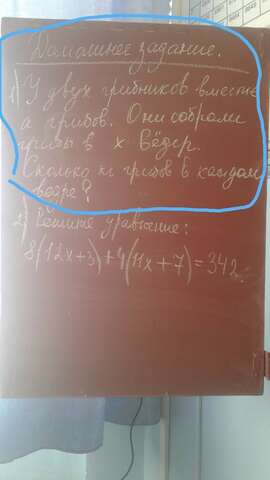 Домашнее задание.
1) У двух грибников вместе
а грибов. Они собрали
грибы в x вёдер.
Сколько кг грибов в каждом
ведре?
2) Решите уравнение:
8(12x+3)+4(11x+7)=342.